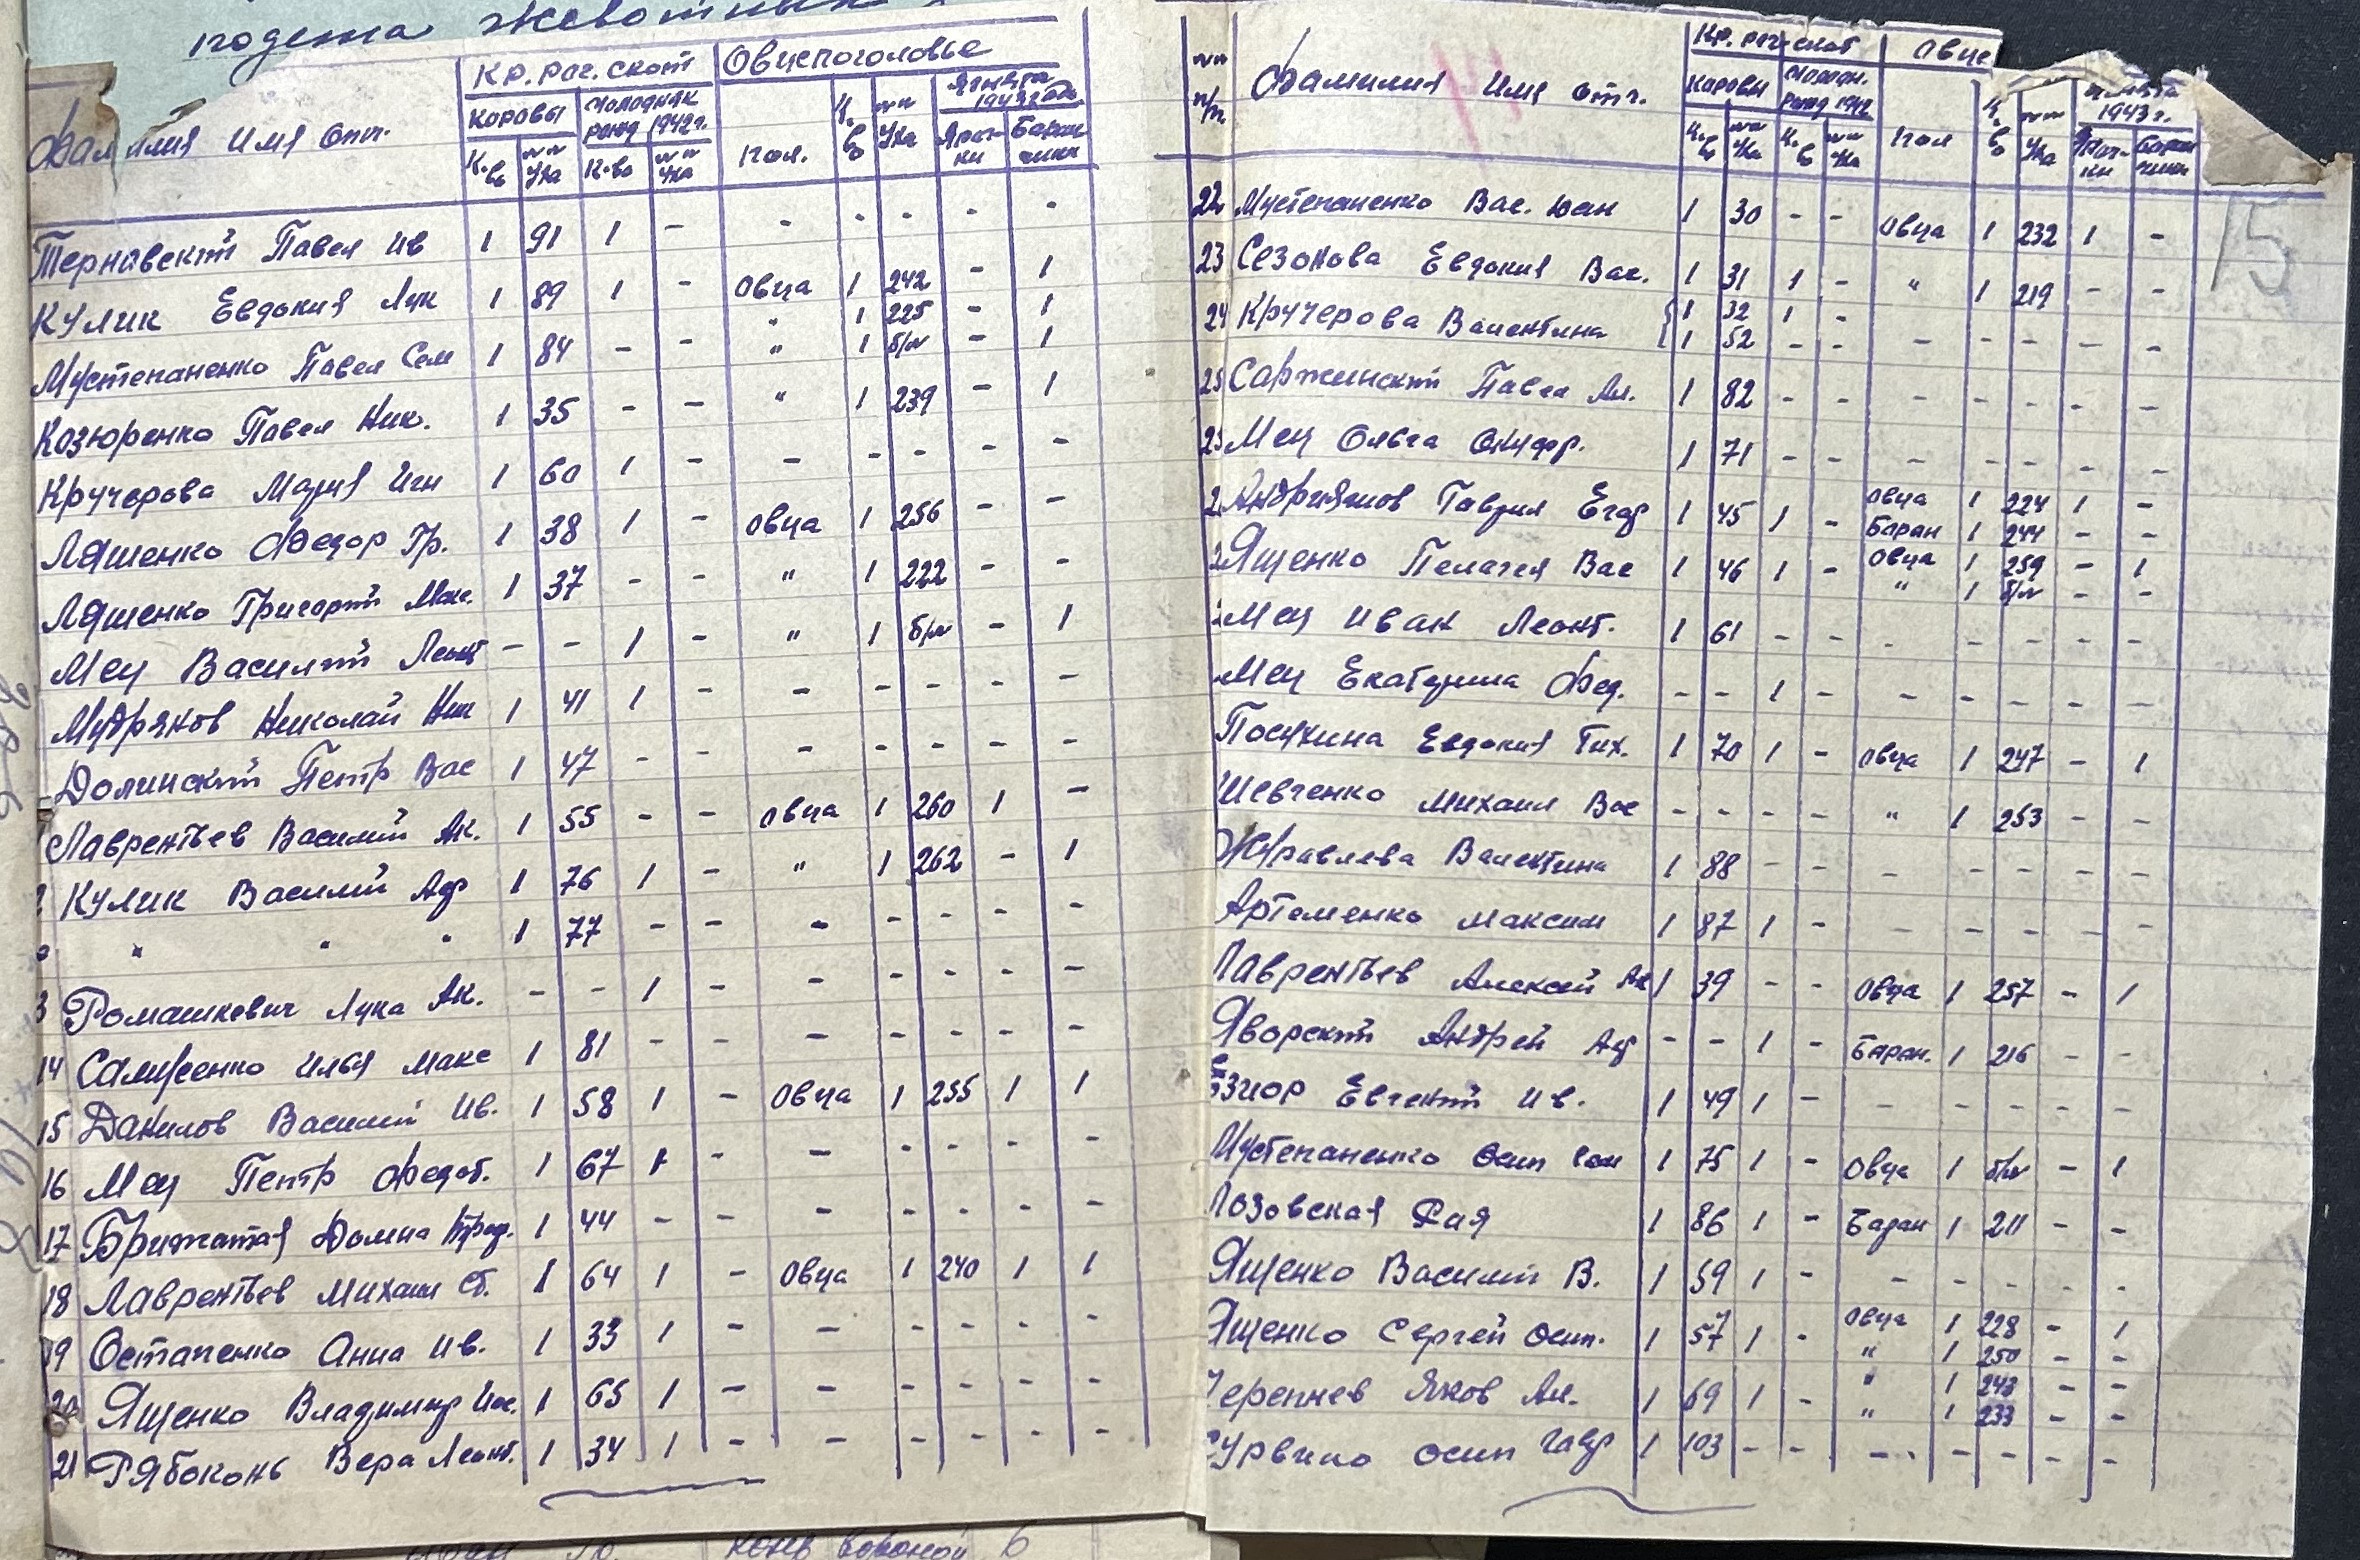 подежа животных
Фамилия Имя Отч. Кр. рог. скот Овцепоголовье
коровы молодняк рожд. 1942 г. пол. к-во №№ ука Ягнята 1943 года
к-во №№ ука к-во №№ ука Ярочки Баранчики
Тернавский Павел Ив 1 91 1 - - - - - -
Кулик Евдокия Лук 1 89 1 - Овца 1 242 - 1
" 1 225 - 1
Мустепаненко Павел Сем 1 84 - - " 1 б/н - 1
Козюренко Павел Ник. 1 35 - - " 1 239 - 1
Кручерова Мария Игн 1 60 1 - - - - - -
Ляшенко Федор Гр. 1 38 1 - Овца 1 256 - -
Ляшенко Григорий Макс. 1 37 - - " 1 222 - -
Мец Василий Леонт - - 1 - " 1 б/н - 1
Мудряков Николай Ник 1 41 1 - - - - - -
Долинский Петр Вас 1 47 - - - - - - -
Лаврентьев Василий Ак. 1 55 - - Овца 1 260 1 -
2 Кулик Василий Аф 1 76 1 - " 1 262 - 1
" " " 1 77 - - - - - - -
3 Ромашкевич Лука Ак. - - 1 - - - - - -
14 Самусенко Илья Макс 1 81 - - - - - - -
15 Данилов Василий Ив. 1 58 1 - Овца 1 255 1 1
16 Мец Петр Федот. 1 67 1 - - - - - -
17 Брижатая Домна 1 44 - - - - - - -
18 Лаврентьев Михаил Ст. 1 64 1 - Овца 1 240 1 1
19 Остапенко Анна Ив. 1 33 1 - - - - - -
20 Ященко Владимир Иос. 1 65 1 - - - - - -
21 Рябоконь Вера Леонт. 1 34 1 - - - - - -
№№ п/п Фамилия Имя отч. Кр. рог. скот Овце
коровы молодн. рожд 1942 пол к-во №№ ука 1943 г.
к-во №№ ука к-во №№ ука Ярочки Баранчики
15
22 Мустепаненко Вас. Юан 1 30 - - Овца 1 232 1 -
23 Сезонова Евдокия Вас. 1 31 1 - " 1 219 - -
24 Кручерова Валентина 1 32 1 -
1 52 - - - - - - -
25 Саржинский Павел Ал. 1 82 - - - - - - -
Мец Ольга Онуфр. 1 71 - - - - - - -
Андриянов Гаврил Егор 1 45 1 - Овца 1 224 1 -
Баран 1 244 - -
Ященко Пелагея Вас 1 46 1 - Овца 1 259 - 1
" 1 б/н - -
Мец Иван Леонт. 1 61 - - - - - - -
Мец Екатерина Фед. - - 1 - - - - - -
Посухина Евдокия Тих. 1 70 1 - Овца 1 247 - 1
Шевченко Михаил Вас - - - - " 1 253 - -
Журавлева Валентина 1 88 - - - - - - -
Артеменко Максим 1 87 1 - - - - - -
Лаврентьев Алексей Ак 1 39 - - Овца 1 257 - 1
Яворский Андрей Аф - - 1 - Баран. 1 216 - -
Езиор Евгений Ив. 1 49 1 - - - - - -
Мустепаненко Осип Сем 1 75 1 - Овца 1 б/н - 1
Лозовская Рая 1 86 1 - Баран 1 211 - -
Ященко Василий В. 1 59 1 - - - - - -
Ященко Сергей Осип. 1 57 1 - Овца 1 228 - 1
" 1 250 - -
Черепнев Яков Ал. 1 69 1 - " 1 248 - -
" 1 233 - -
Осип Гавр 1 103 - - - - - - -
конь вороной 6